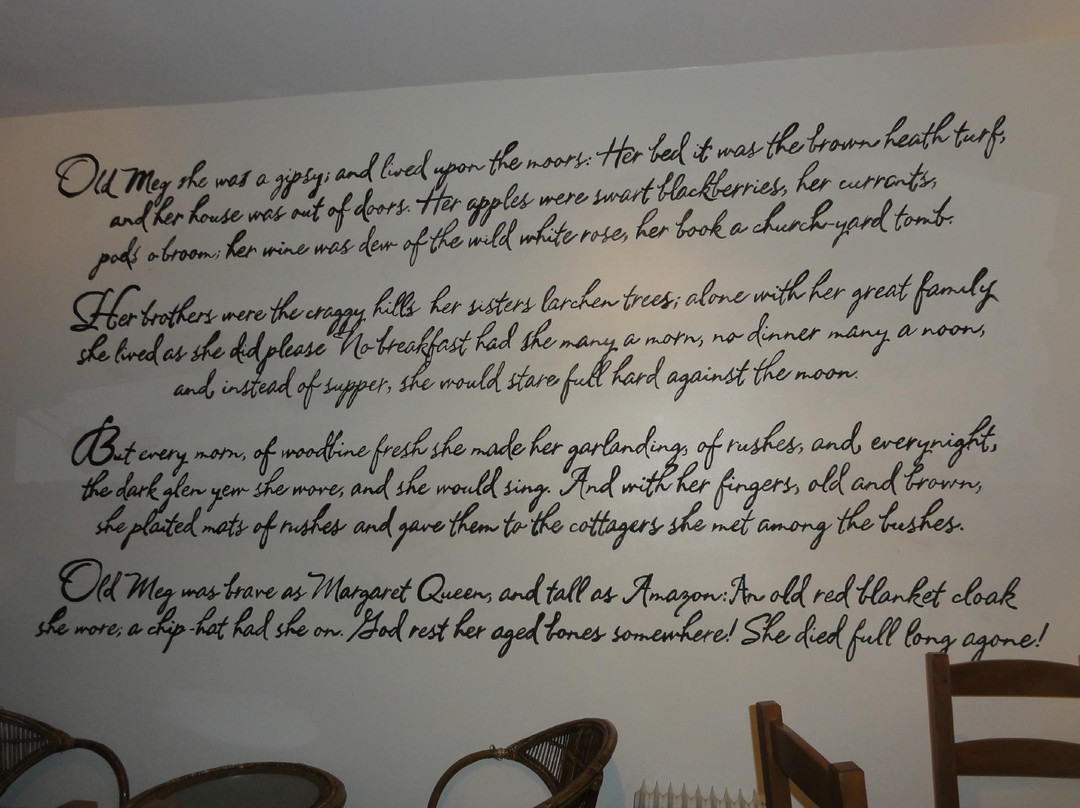 Old Meg she was a gipsy; and lived upon the moors: Her bed it was the brown heath turf,
and her house was out of doors. Her apples were swart blackberries, her currants,
pods o broom; her wine was dew of the wild white rose, her book a church-yard tomb.
Her brothers were the craggy hills her sisters larchen trees; alone with her great family
she lived as she did please No breakfast had she many a morn, no dinner many a noon,
and, instead of supper, she would stare full hard against the moon.
But every morn, of woodbine fresh she made her garlanding, of rushes, and, everynight,
the dark glen yew she wove, and she would sing. And with her fingers, old and brown,
she plaited mats of rushes and gave them to the cottagers she met among the bushes.
Old Meg was brave as Margaret Queen, and tall as Amazon: An old red blanket cloak
she wore; a chip-hat had she on. God rest her aged bones somewhere! She died full long agone!